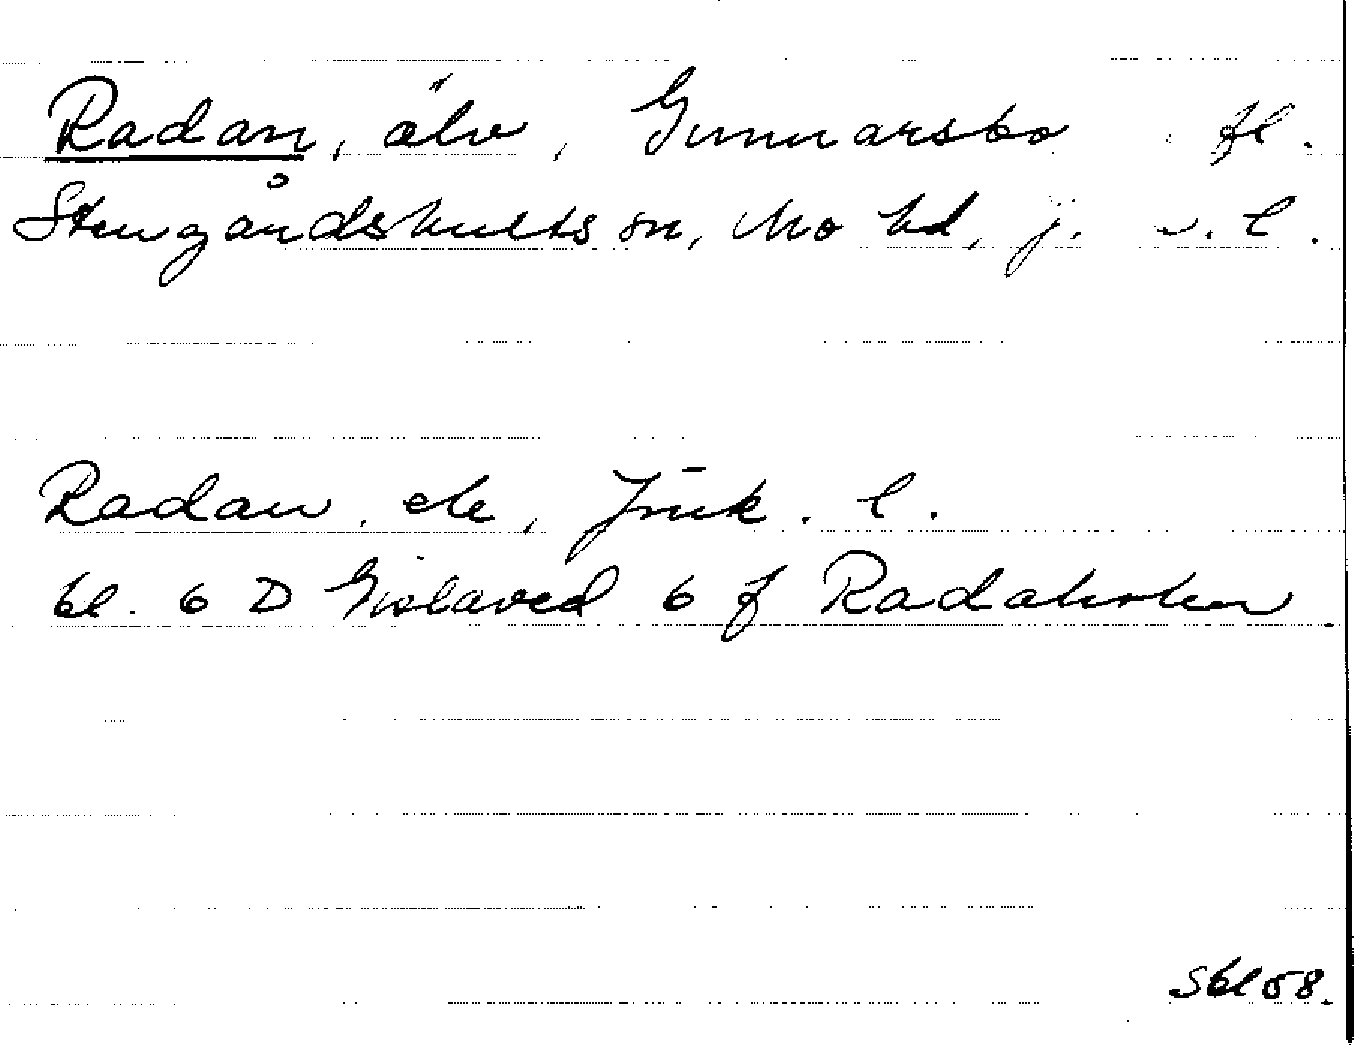 Radan, älv, Gunnarsbo fl.
Stengårdshults sn, Mo hd, j. v. l.
Radan, ele, Jnk. l.
bl. 6 D Gislaved 6 f Radaholen
Sbl 58.